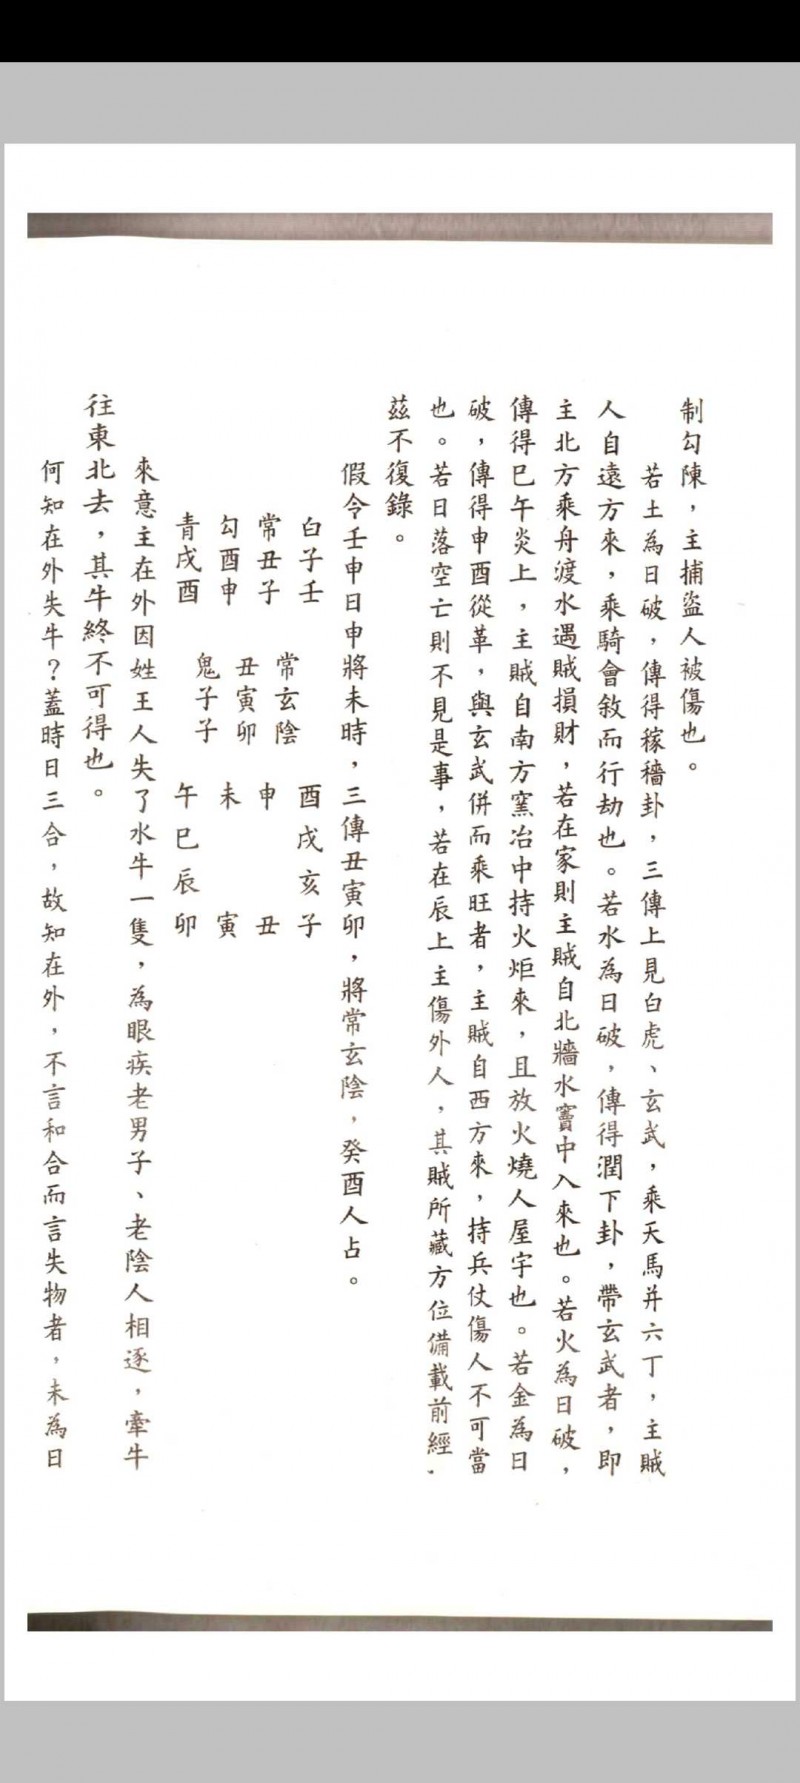 制勾陳，主捕盜人被傷也。
若土為日破，傳得稼穡卦，三傳上見白虎、玄武，乘天馬并六丁，主賊
人自遠方來，乘騎會敘而行劫也。若水為日破，傳得潤下卦，帶玄武者，即
主北方乘舟渡水遇賊損財，若在家則主賊自北牆水竇中入來也。若火為日破，
傳得巳午炎上，主賊自南方窯冶中持火炬來，且放火燒人屋宇也。若金為日
破，傳得申酉從革，與玄武併而乘旺者，主賊自西方來，持兵仗傷人不可當
也。若日落空亡則不見是事，若在辰上主傷外人，其賊所藏方位備載前經.
茲不復錄。
假令壬申日申將未時，三傳丑寅卯，將常玄陰，癸酉人占。
白子壬
常丑子
勾酉申
青戌酉
常玄陰
丑寅卯
鬼子子
酉戌亥子
申 丑
未 寅
午巳辰卯
來意主在外因姓王人失了水牛一隻，為眼疾老男子、老陰人相逐，牽牛
往東北去，其牛終不可得也。
何知在外失牛？蓋時日三合，故知在外，不言和合而言失物者，未為日